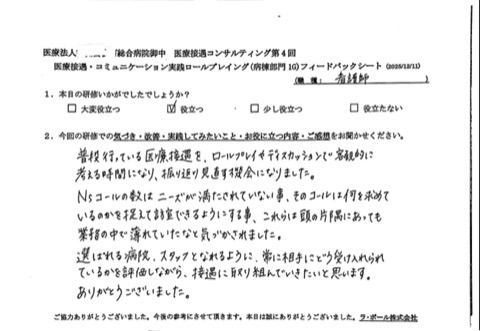 医療法人 総合病院御中 医療接遇コンサルティング第4回
医療接遇・コミュニケーション実践ロールプレイング(病棟部門1G)フィードバックシート(2025/12/11)
(職種: 看護師 )
1. 本日の研修いかがでしたでしょうか?
□ 大変役立つ ☑ 役立つ □ 少し役立つ □ 役立たない
2. 今回の研修での気づき・改善・実践してみたいこと・お役に立つ内容・ご感想をお聞かせください。
普段行っている医療接遇を、ロールプレイやディスカッションで客観的に
考える時間になり、振り返り見直す機会になりました。
Nsコールの数はニーズが満たされていない事、そのコールは何を求めて
いるのかを捉えて訪室できるようにする事、これらは頭の片隅にあっても
業務の中で薄れていたなと気づかされました。
選ばれる病院、スタッフとなれるように、常に相手にどう受け入れられ
ているかを評価しながら、接遇に取り組んでいきたいと思います。
ありがとうございました。
ご協力ありがとうございました。今後の参考にさせて頂きます。本日は誠にありがとうございました。ラ・ポール株式会社